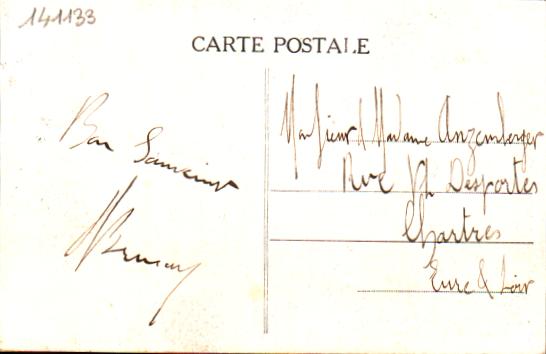 141133
CARTE POSTALE
Bon Souvenir
Monsieur & Madame Anzemberger
Rue Ph Desportes
Chartres
Eure & Loir